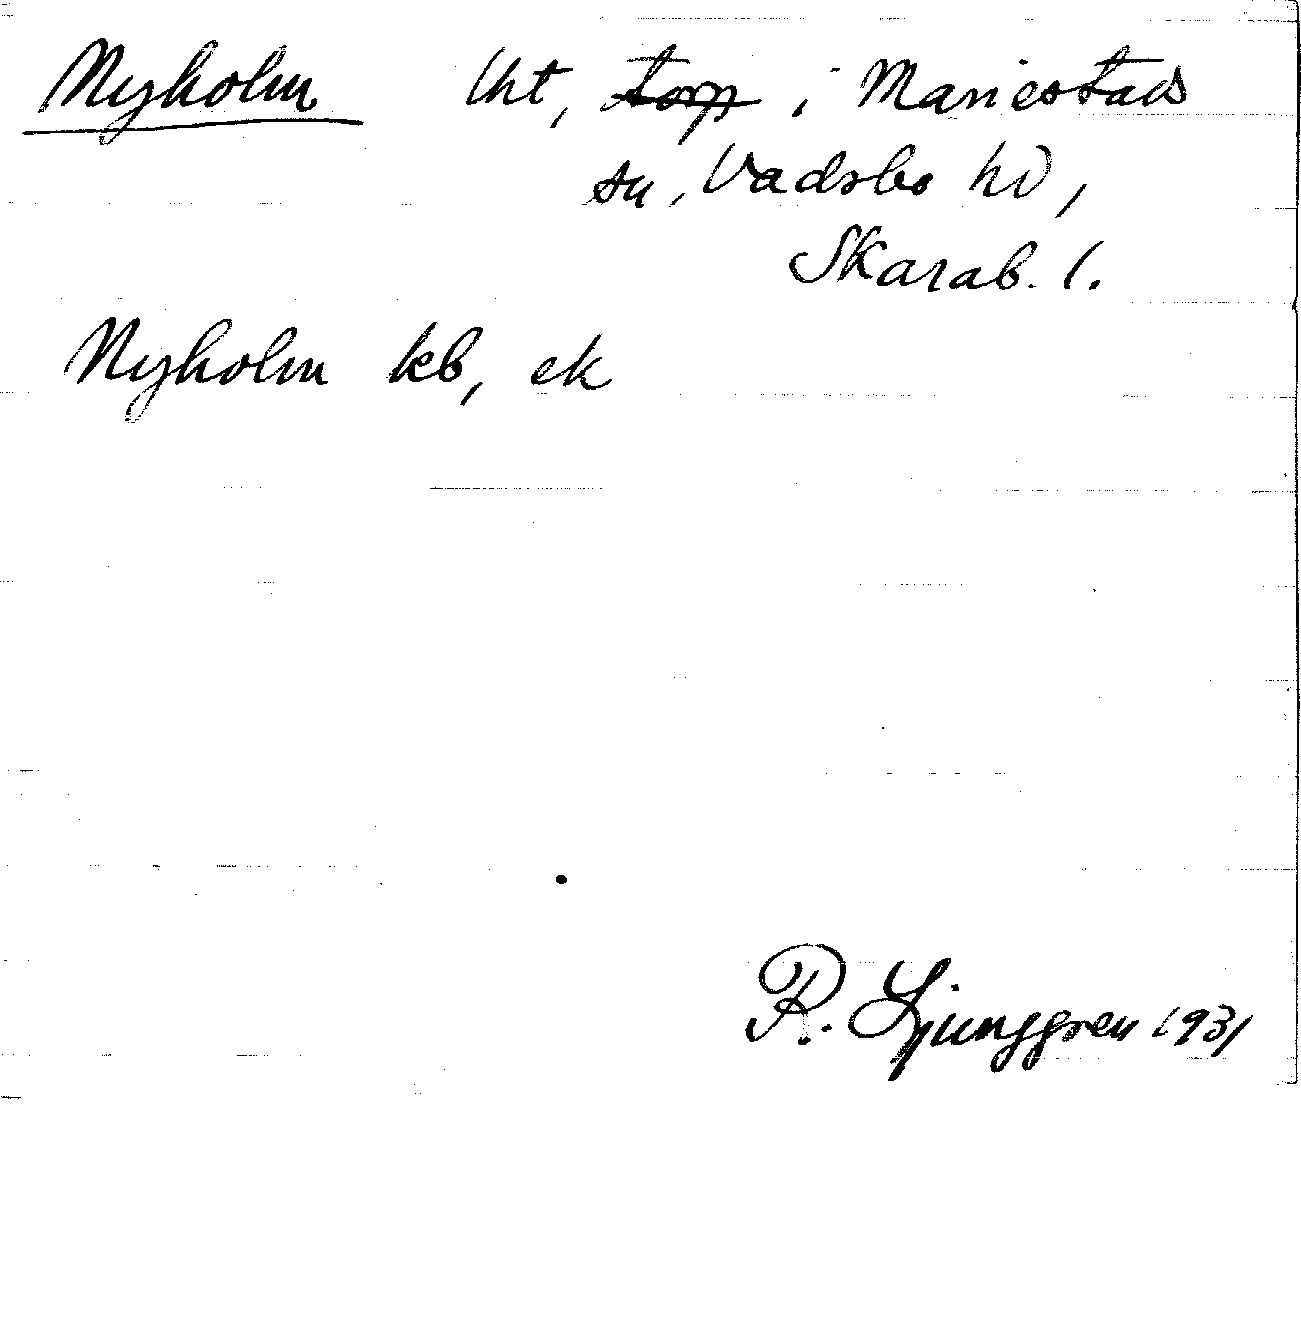 Nyholm lht, torp i Mariestads
sn, Vadsbo hd,
Skarab. l.
Nyholm kb, ek
R. Ljunggren 1931